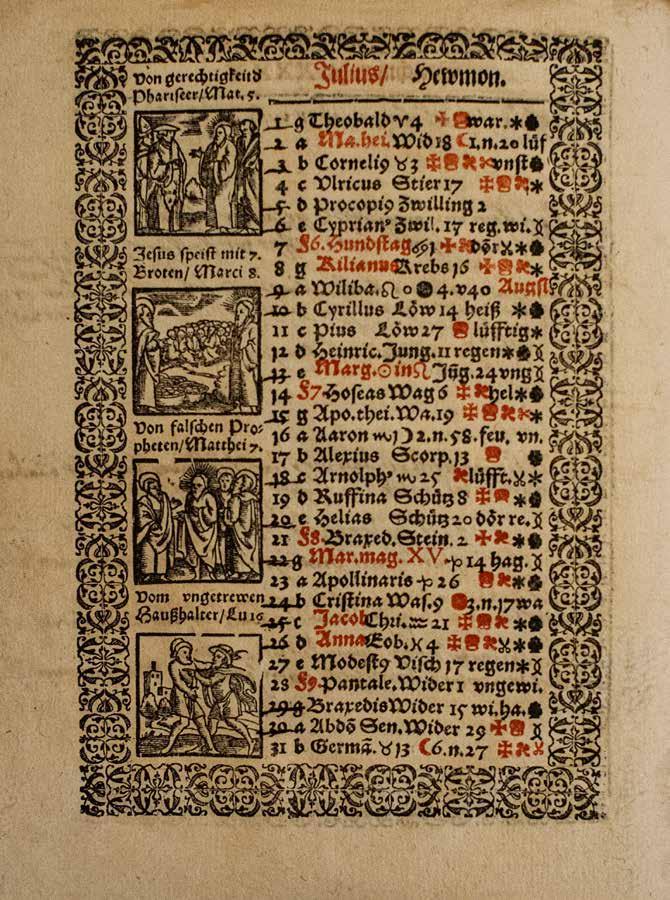 Von gerechtigkeit d
Phariseer/Mat. 5.
Jesus speist mit 7.
Broten/ Marci 8.
Von falschen Pro-
pheten/Matthei 7.
Vom vngetrewen
Haußhalter/Lu 16
Julius/ Hewmon.
1 g Theobald ♈ 4 war.
2 a Ma. hei. Wid 18 ☾ 1. n. 20 lüf
3 b Corneli9 ♉ 3 vnst
4 c Vlricus Stier 17
5 d Procopi9 Zwilling 2
6 e Cyprian9 Zwil. 17 reg. wi.
7 §6. Hundstag ♋ 1 dör
8 g Kilianus Krebs 16
9 a Wiliba. ♌ 0 4. v 40 Augst
10 b Cyrillus Löw 14 heiß
11 c Pius Löw 27 lüfftig
12 d Heinric. Jung. 11 regen
13 e Marg. ☉ in ♌ Jūg. 24 vng
14 §7. Hoseas Wag 6 hel
15 g Apo. thei. Wa. 19
16 a Aaron ♏ 1 ☽ 2. n. 58. feu. vn.
17 b Alexius Scorp. 13
18 c Arnolph9 ♏ 25 lüfft.
19 d Ruffina Schütz 8
20 e Helias Schütz 20 dör re.
21 §8. Braxed. Stein. 2
22 g Mar. mag. XV. ♑ 14 hag.
23 a Apollinaris ♑ 26
24 b Cristina Was. 9 3. n. 17 wa
25 c Jacob Chri. ♒ 21
26 d Anna Eob. ♓ 4
27 e Modest9 Visch 17 regen
28 §9. Pantale. Wider 1 vngewi.
29 g Braxedis Wider 15 wi. ha.
30 a Abdō Sen. Wider 29
31 b Germā. ♉ 13 ☾ 6. n. 27